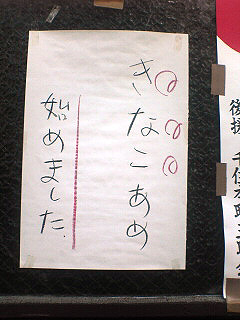 きなこあめ
始めました.
後援